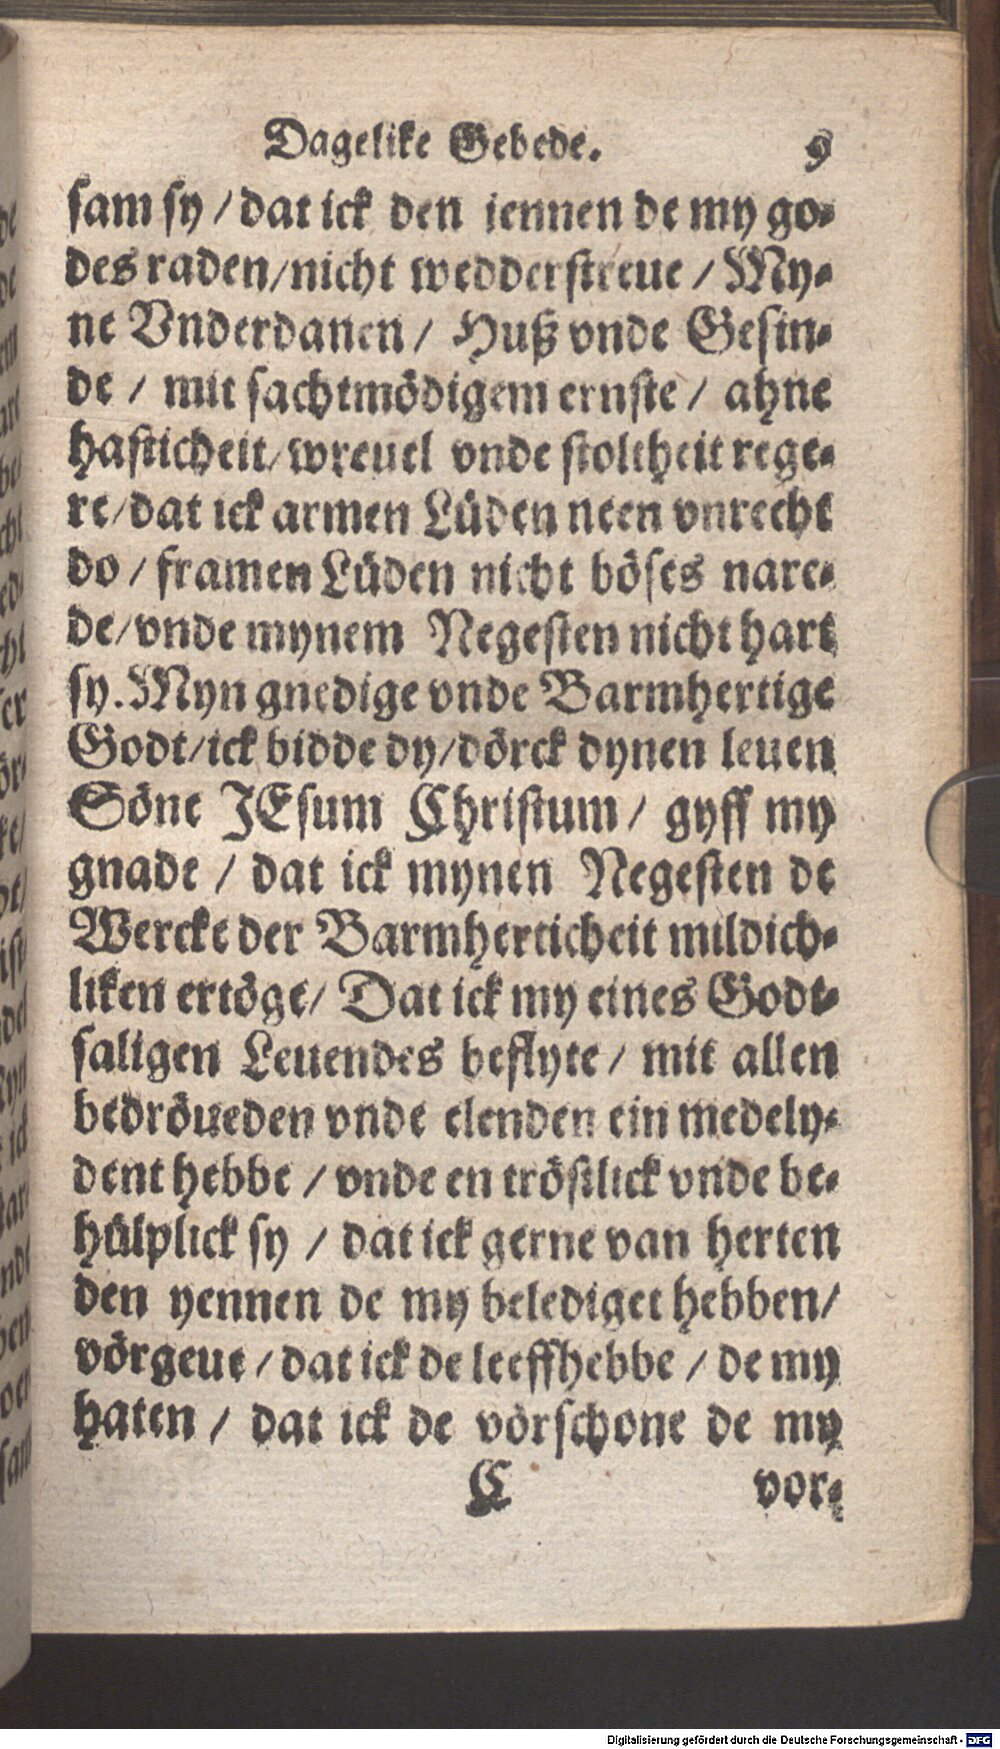 Dagelike Gebede. 9
sam sy / dat ick den iennen de my go-
des raden/nicht wedderstreue / My-
ne Vnderdanen / Huß vnde Gesin-
de / mit sachtmödigem ernste / ahne
hasticheit/wreuel vnde stoltheit rege-
re/dat ick armen Lüden neen vnrecht
do / framen Lüden nicht böses nare-
de/vnde mynem Negesten nicht hart
sy. Myn gnedige vnde Barmhertige
Godt/ick bidde dy/dörck dynen leuen
Söne JEsum Christum / gyff my
gnade / dat ick mynen Negesten de
Wercke der Barmherticheit mildich-
liken ertöge/ Dat ick my eines Godt-
saligen Leuendes beflyte / mit allen
bedröueden vnde elenden ein medely-
dent hebbe / vnde en tröstlick vnde be-
hülplick sy / dat ick gerne van herten
den yennen de my belediget hebben/
vörgeue / dat ick de leeffhebbe / de my
haten / dat ick de vörschone de my
C vor-
Digitalisierung gefördert durch die Deutsche Forschungsgemeinschaft - DFG